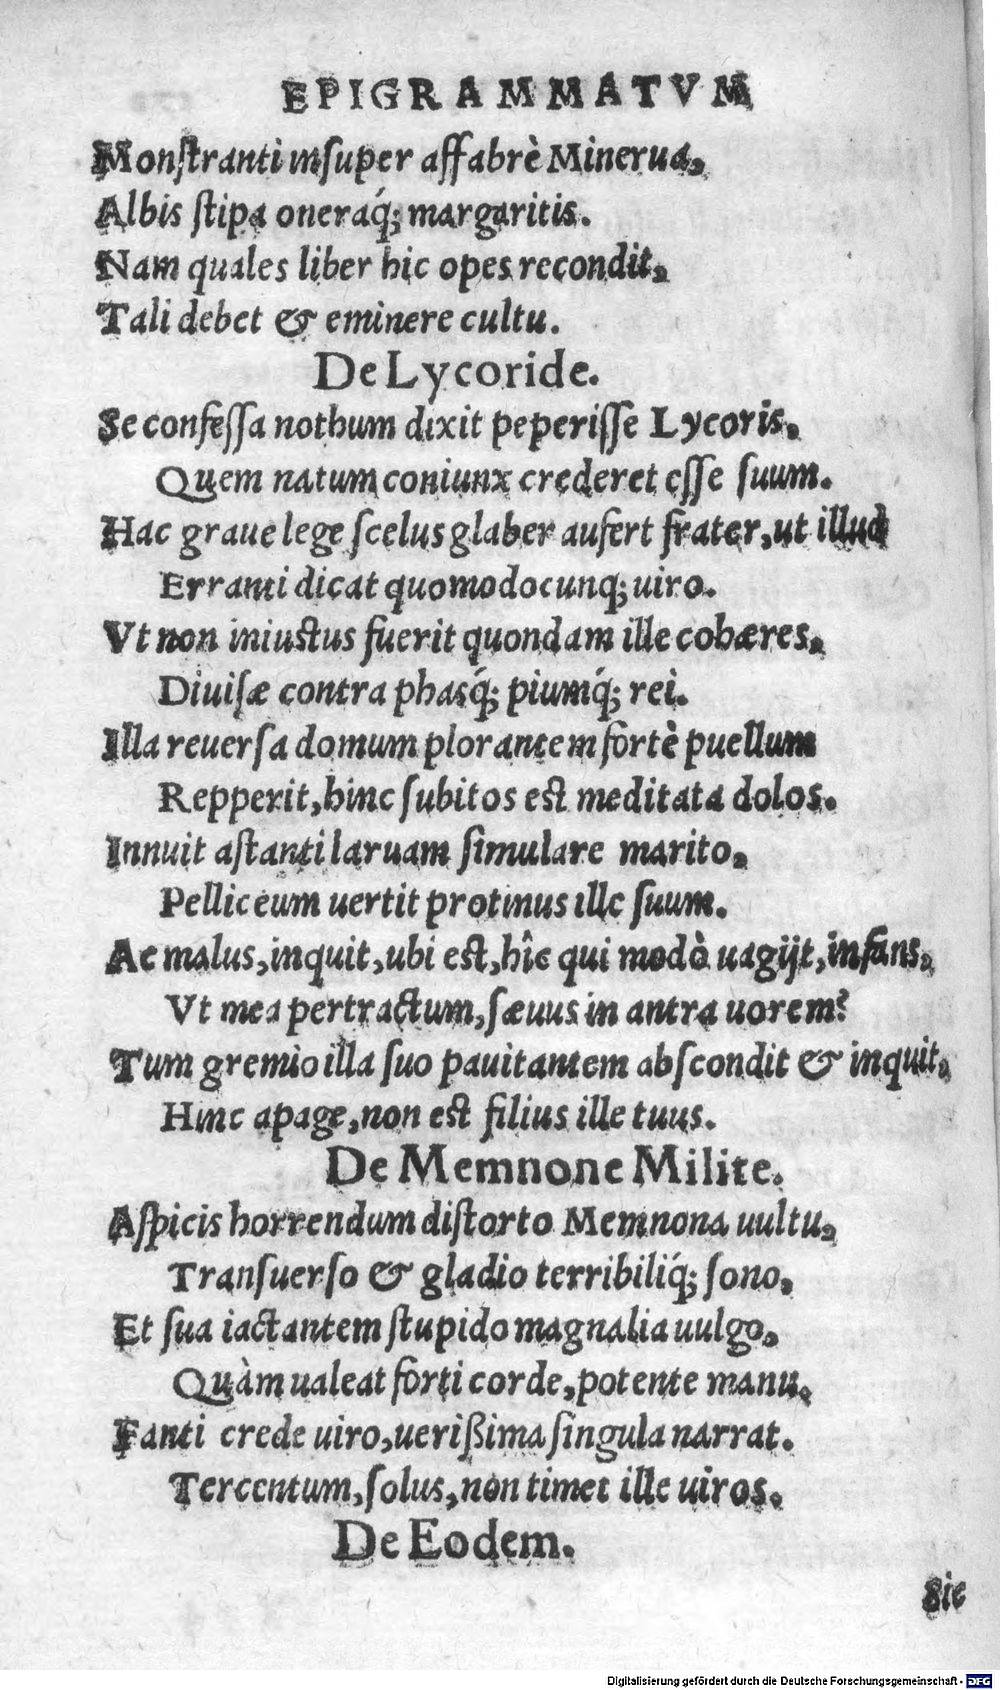 EPIGRAMMATVM
Monſtranti inſuper affabrè Minerua,
Albis ſtipa oneraq́; margaritis.
Nam quales liber hic opes recondit,
Tali debet & eminere cultu.
De Lycoride.
Se confeſſa nothum dixit peperiſſe Lycoris,
Quem natum coniunx crederet eſſe ſuum.
Hac graue lege ſcelus glaber aufert frater, ut illud
Erranti dicat quomodocunq; uiro.
Vt non iniuſtus fuerit quondam ille cohæres,
Diuiſæ contra phasq́; piumq́; rei.
Illa reuerſa domum plorantem fortè puellum
Repperit, hinc ſubitos eſt meditata dolos.
Innuit aſtanti laruam ſimulare marito,
Pelliceum uertit protinus ille ſuum.
Ac malus, inquit, ubi eſt, hîc qui modò uagijt, infans,
Vt mea pertractum, ſæuus in antra uorem?
Tum gremio illa ſuo pauitantem abſcondit & inquit,
Hinc apage, non eſt filius ille tuus.
De Memnone Milite.
Aſpicis horrendum diſtorto Memnona uultu,
Tranſuerſo & gladio terribiliq́; ſono,
Et ſua iactantem ſtupido magnalia uulgo,
Quàm ualeat forti corde, potente manu,
Fanti crede uiro, uerißima ſingula narrat.
Tercentum, ſolus, non timet ille uiros.
De Eodem.
Sic
Digitalisierung gefördert durch die Deutsche Forschungsgemeinschaft - DFG